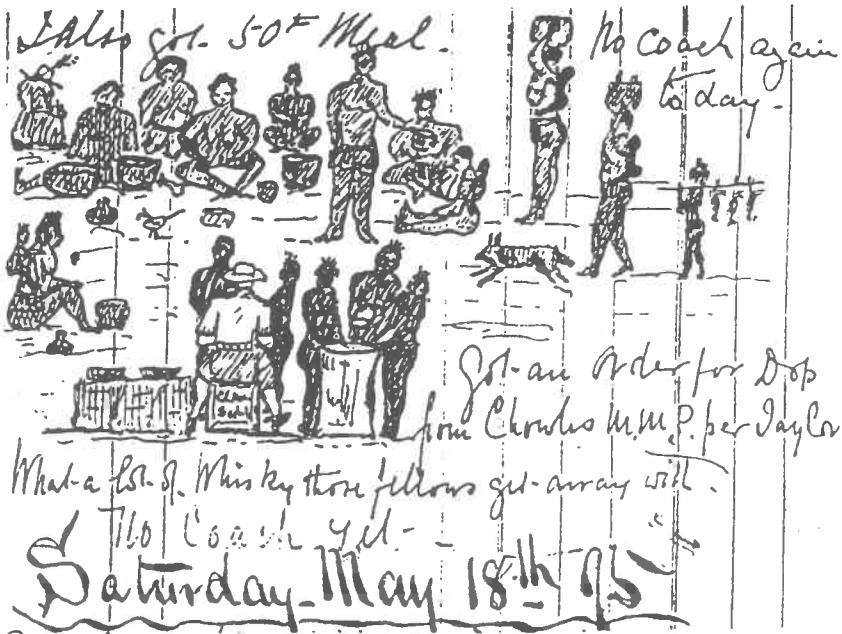 I also got 50# Meal.
No coach again
today -
Got an order for Dop
from Chowles M.M.P. per Taylor
What a lot of Whisky those fellows get away with.
No Coach yet -
Saturday May 18th 95